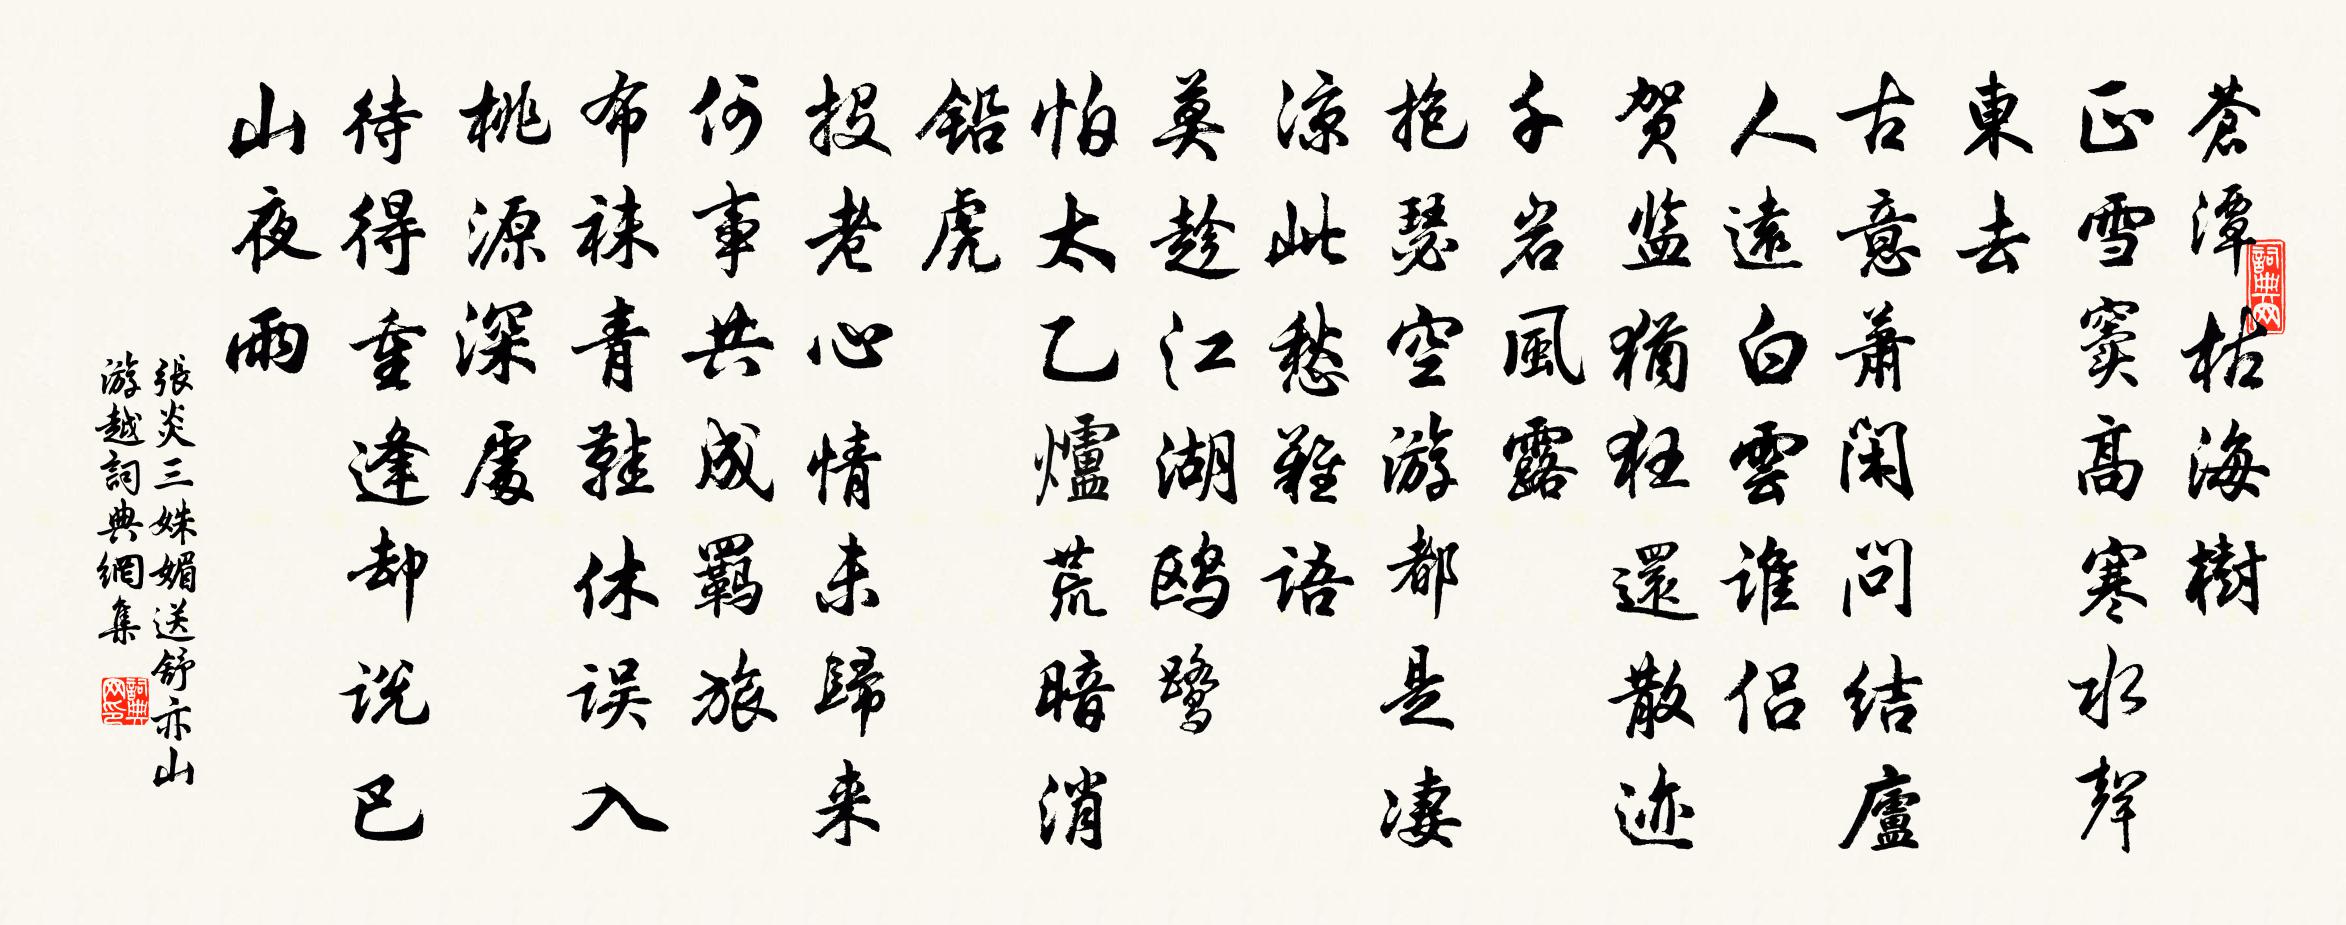 蒼潭枯海樹
正雪窦高寒水聲
東去
古意蕭闲问结廬
人遠白雲谁侣
贺监猶狂還散迹
千岩風露
抱瑟空游都是凄
凉此愁難语
莫趁江湖鸥鹭
怕太乙爐荒暗消
鉛虎
投老心情未歸来
何事共成羁旅
布袜青鞋休误入
桃源深處
待得重逢却说巴
山夜雨
張炎三姝媚送舒亦山
游越詞典網集
詞典网
詞典网印